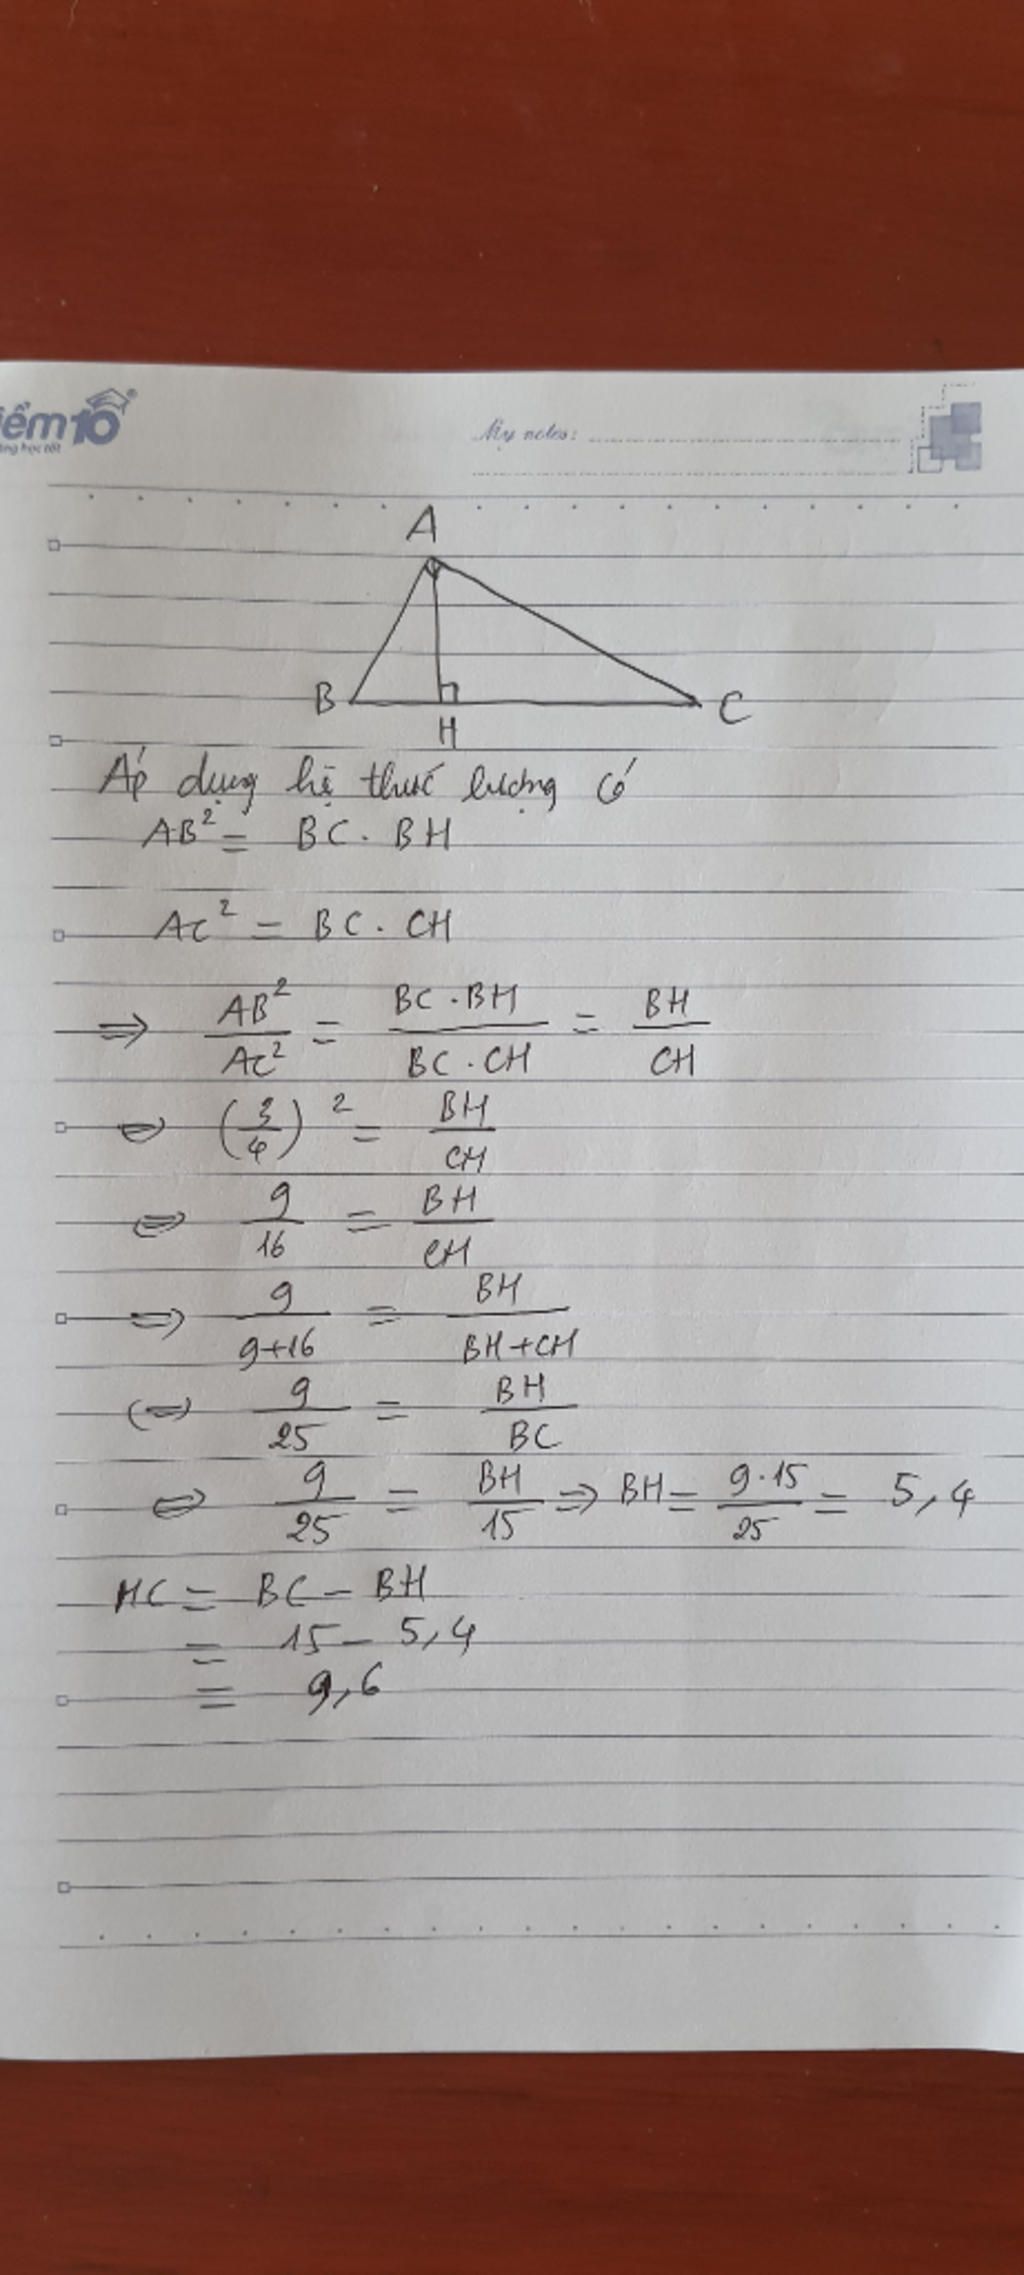 iểm10
My notes:
A
B
C
H
Áp dụng hệ thức lượng có
AB² = BC . BH
AC² = BC . CH
⇒ AB²/AC² = BC . BH/BC . CH = BH/CH
⇔ (3/4)² = BH/CH
⇔ 9/16 = BH/CH
⇒ 9/9+16 = BH/BH+CH
⇔ 9/25 = BH/BC
⇔ 9/25 = BH/15 ⇒ BH = 9.15/25 = 5,4
HC = BC - BH
= 15 - 5,4
= 9,6